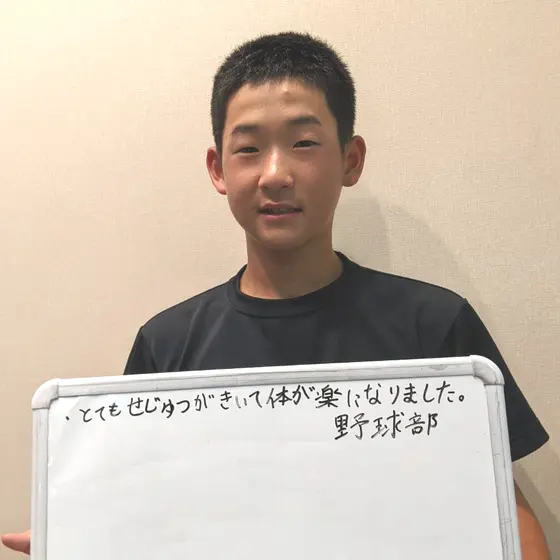 ・とてもせじゅつがきいて体が楽になりました。
野球部